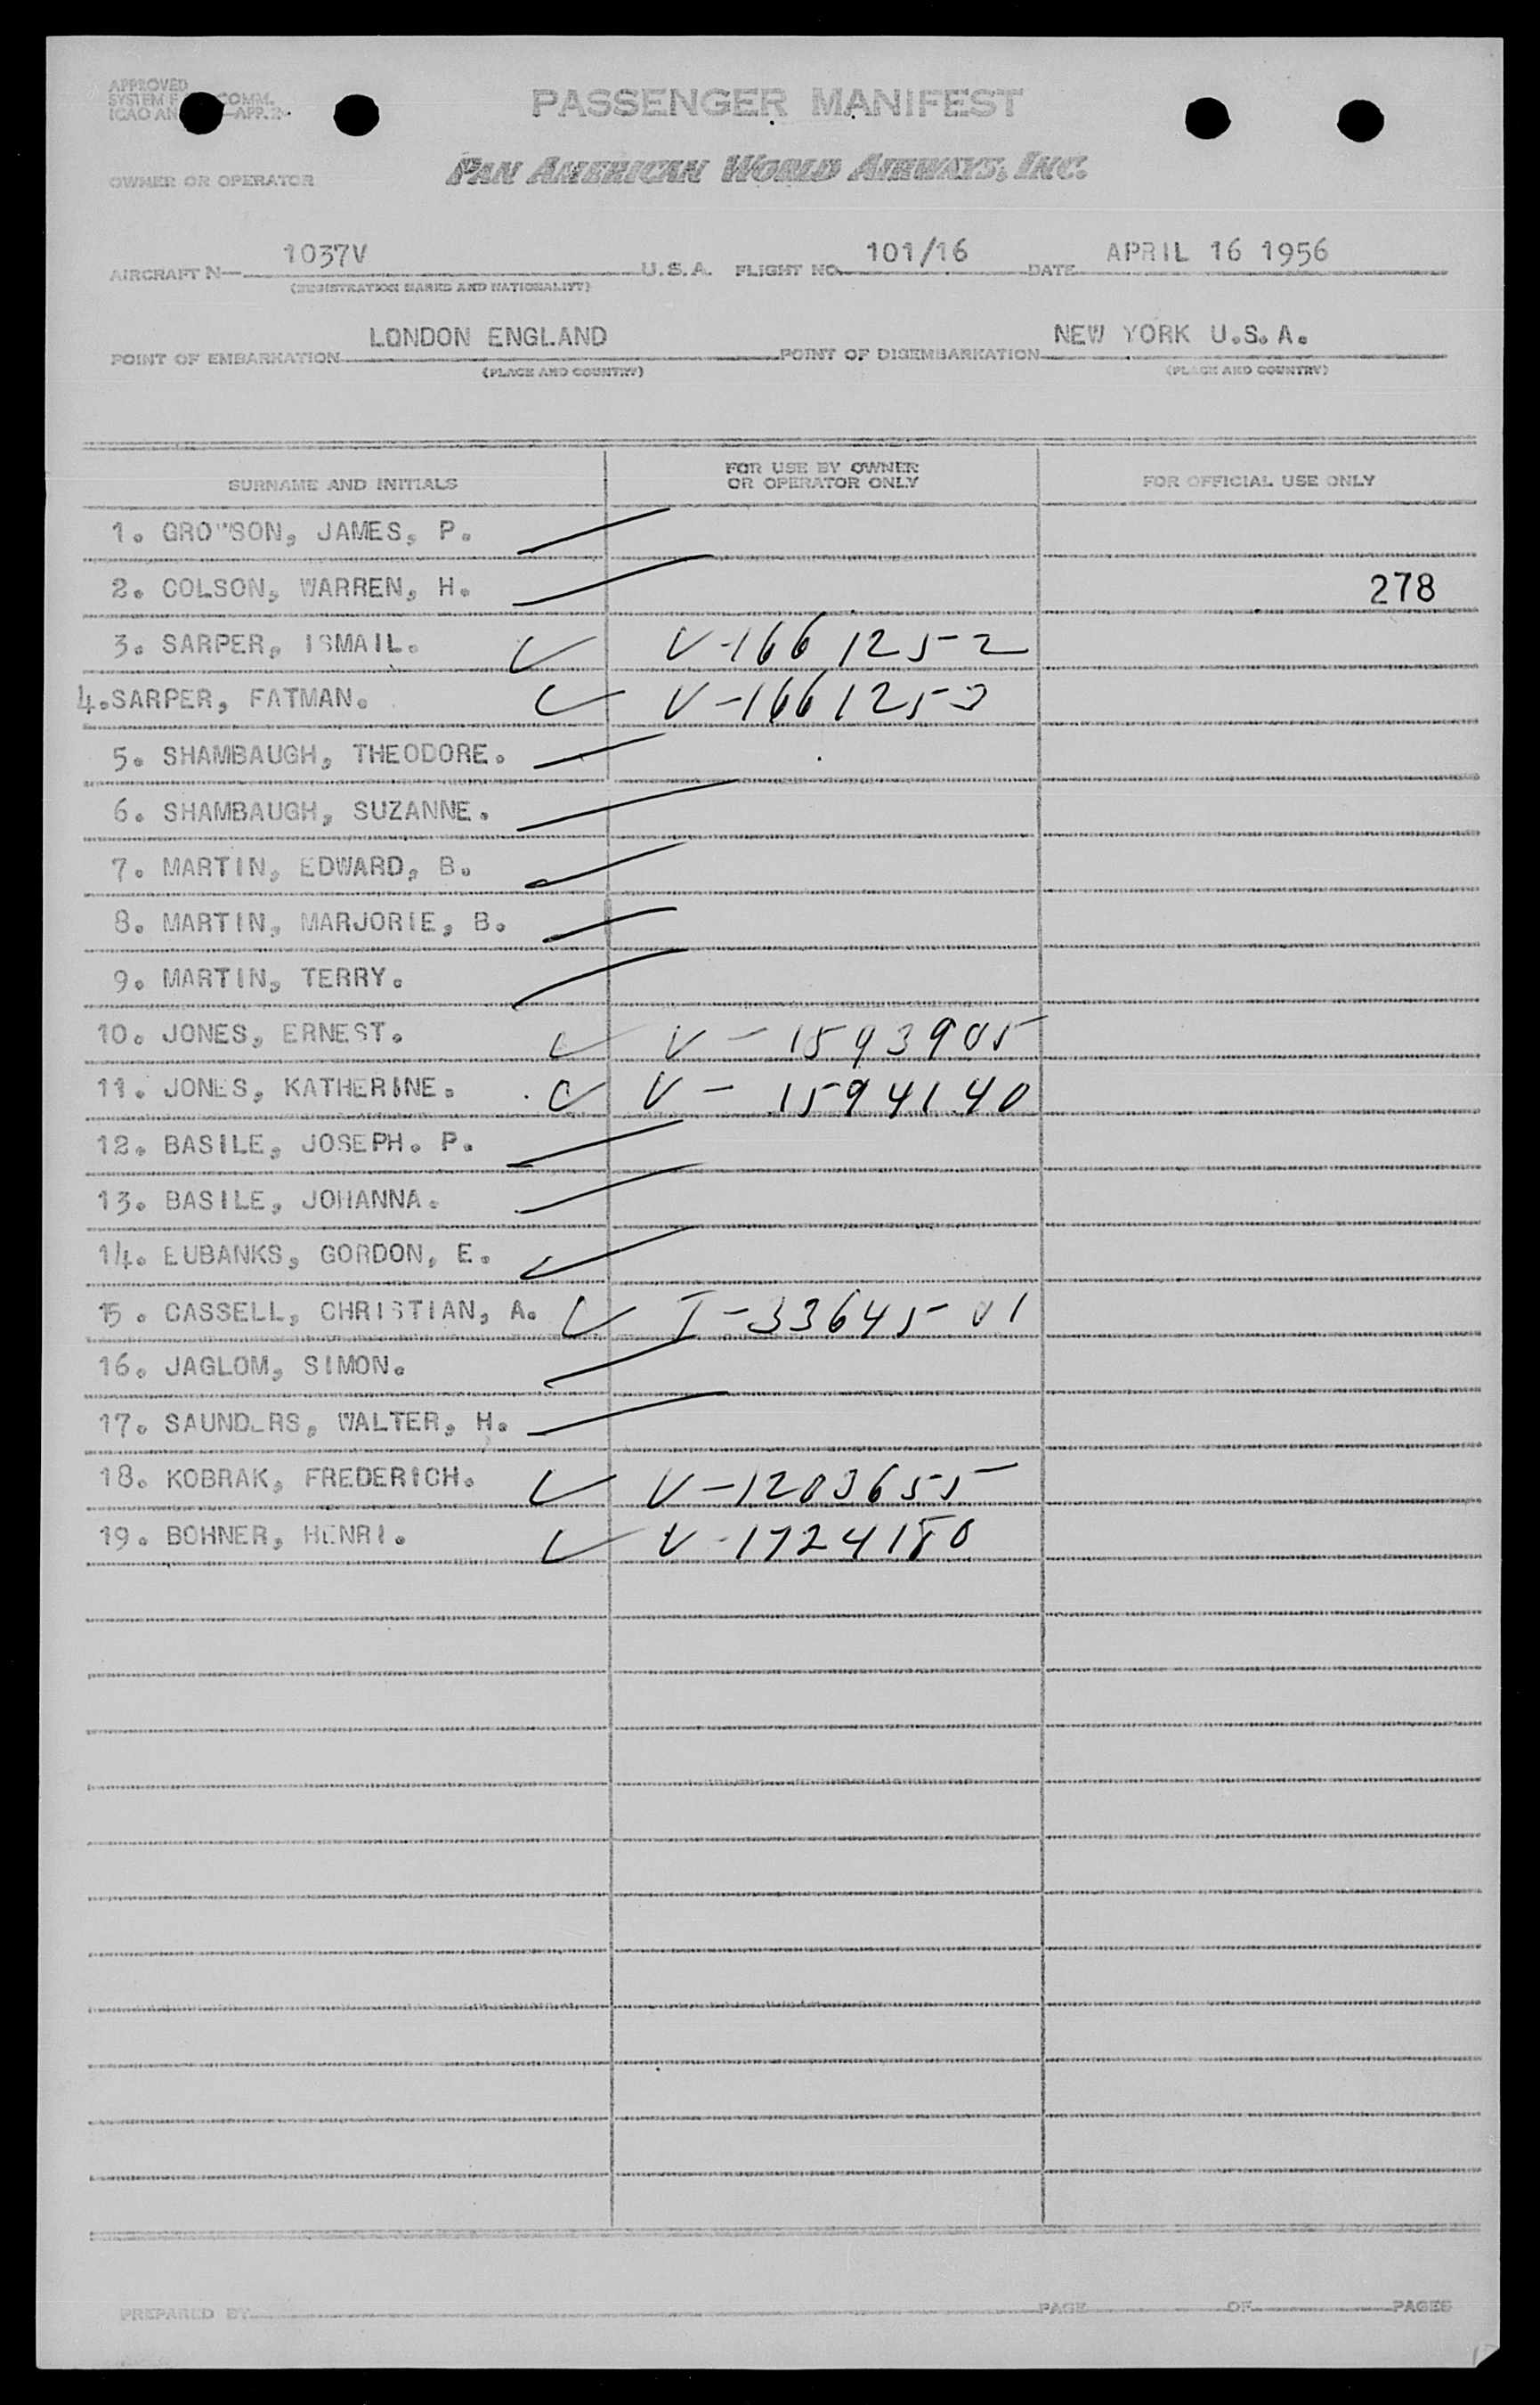 APPROVED
SYSTEM COMM.
ICAO AN —APP.
PASSENGER MANIFEST
OWNER OR OPERATOR
PAN AMERICAN WORLD AIRWAYS, INC.
AIRCRAFT N— 1037V U.S.A. FLIGHT NO. 101/16 DATE APRIL 16 1956
(REGISTRATION MARKS AND NATIONALITY)
POINT OF EMBARKATION LONDON ENGLAND POINT OF DISEMBARKATION NEW YORK U.S.A.
(PLACE AND COUNTRY) (PLACE AND COUNTRY)
SURNAME AND INITIALS FOR USE BY OWNER OR OPERATOR ONLY FOR OFFICIAL USE ONLY
1. JAMES, P.
2. COLSON, WARREN, H. 278
3. SARPER, ISMAIL. V-1661252
4. SARPER, FATMAN. V-1661253
5. SHAMBAUGH, THEODORE.
6. SHAMBAUGH, SUZANNE.
7. MARTIN, EDWARD, B.
8. MARTIN, MARJORIE, B.
9. MARTIN, TERRY.
10. JONES, ERNEST. V-1593905
11. JONES, KATHERINE. V-1594140
12. BASILE, JOSEPH. P.
13. BASILE, JOHANNA.
14. EUBANKS, GORDON, E.
15. CASSELL, CHRISTIAN, A. I-3364501
16. JAGLOM, SIMON.
17. SAUNDERS, WALTER, H.
18. KOBRAK, FREDERICH. V-1203655
19. BOHNER, HENRI. V-1724180
PREPARED BY PAGE OF PAGES